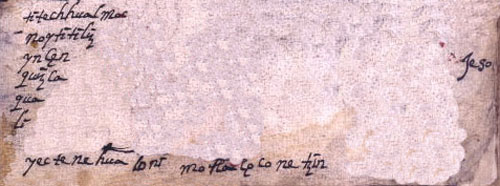 titechhualmoc
noytitiliz̃
ynlęn
quiz̃la
Jeso
qua
li
yectenehualoni motlaçoconetzin